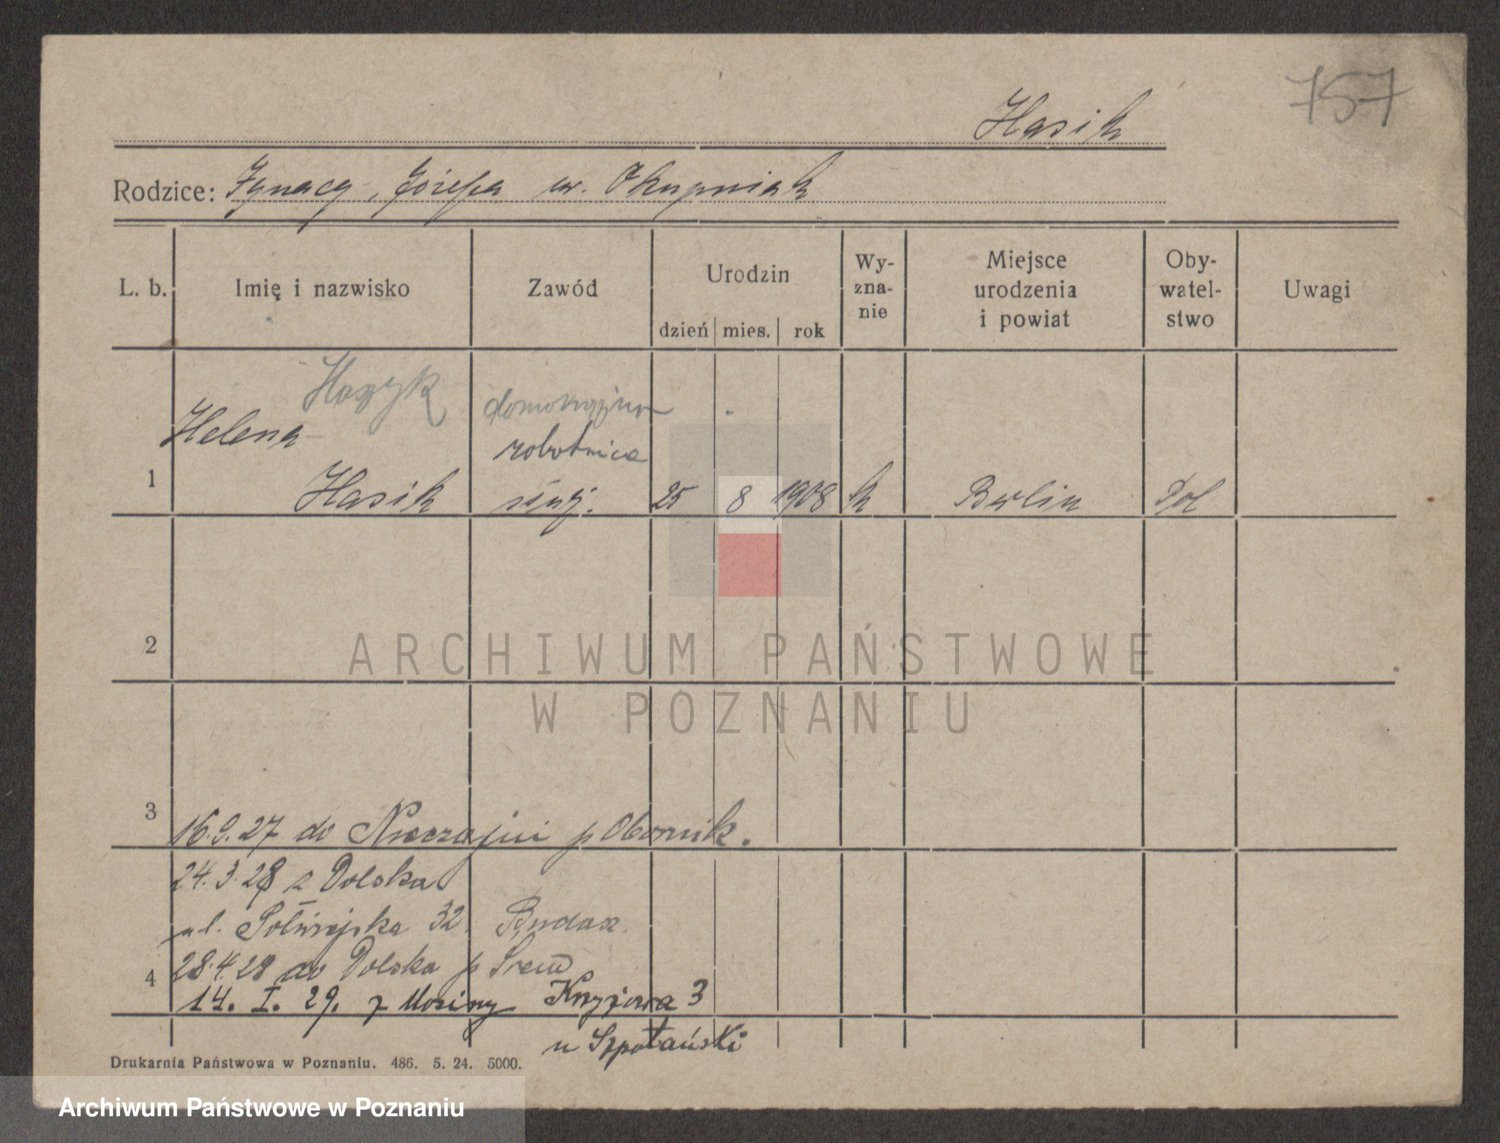 757
Hasik
Rodzice: Ignacy, Józefa ur. Okupniak
L. b. Imię i nazwisko Zawód Urodzin dzień mies. rok Wy-zna-nie Miejsce urodzenia i powiat Oby-watel-stwo Uwagi
Hazyk
Helena robotnica
1 Hasik służ. 25 8 1908 k Berlin Pol
2
ARCHIWUM PAŃSTWOWE
W POZNANIU
3 16.9.27 do Nieczajni p Obornik.
24.3.28 z Dolska
ul. Półwiejska 32.
4 28.4.28 do Dolska p Śrem
14. I. 29. z Mosiny Krzyżowa 3
u Szpotański
Drukarnia Państwowa w Poznaniu. 486. 5. 24. 5000.
Archiwum Państwowe w Poznaniu